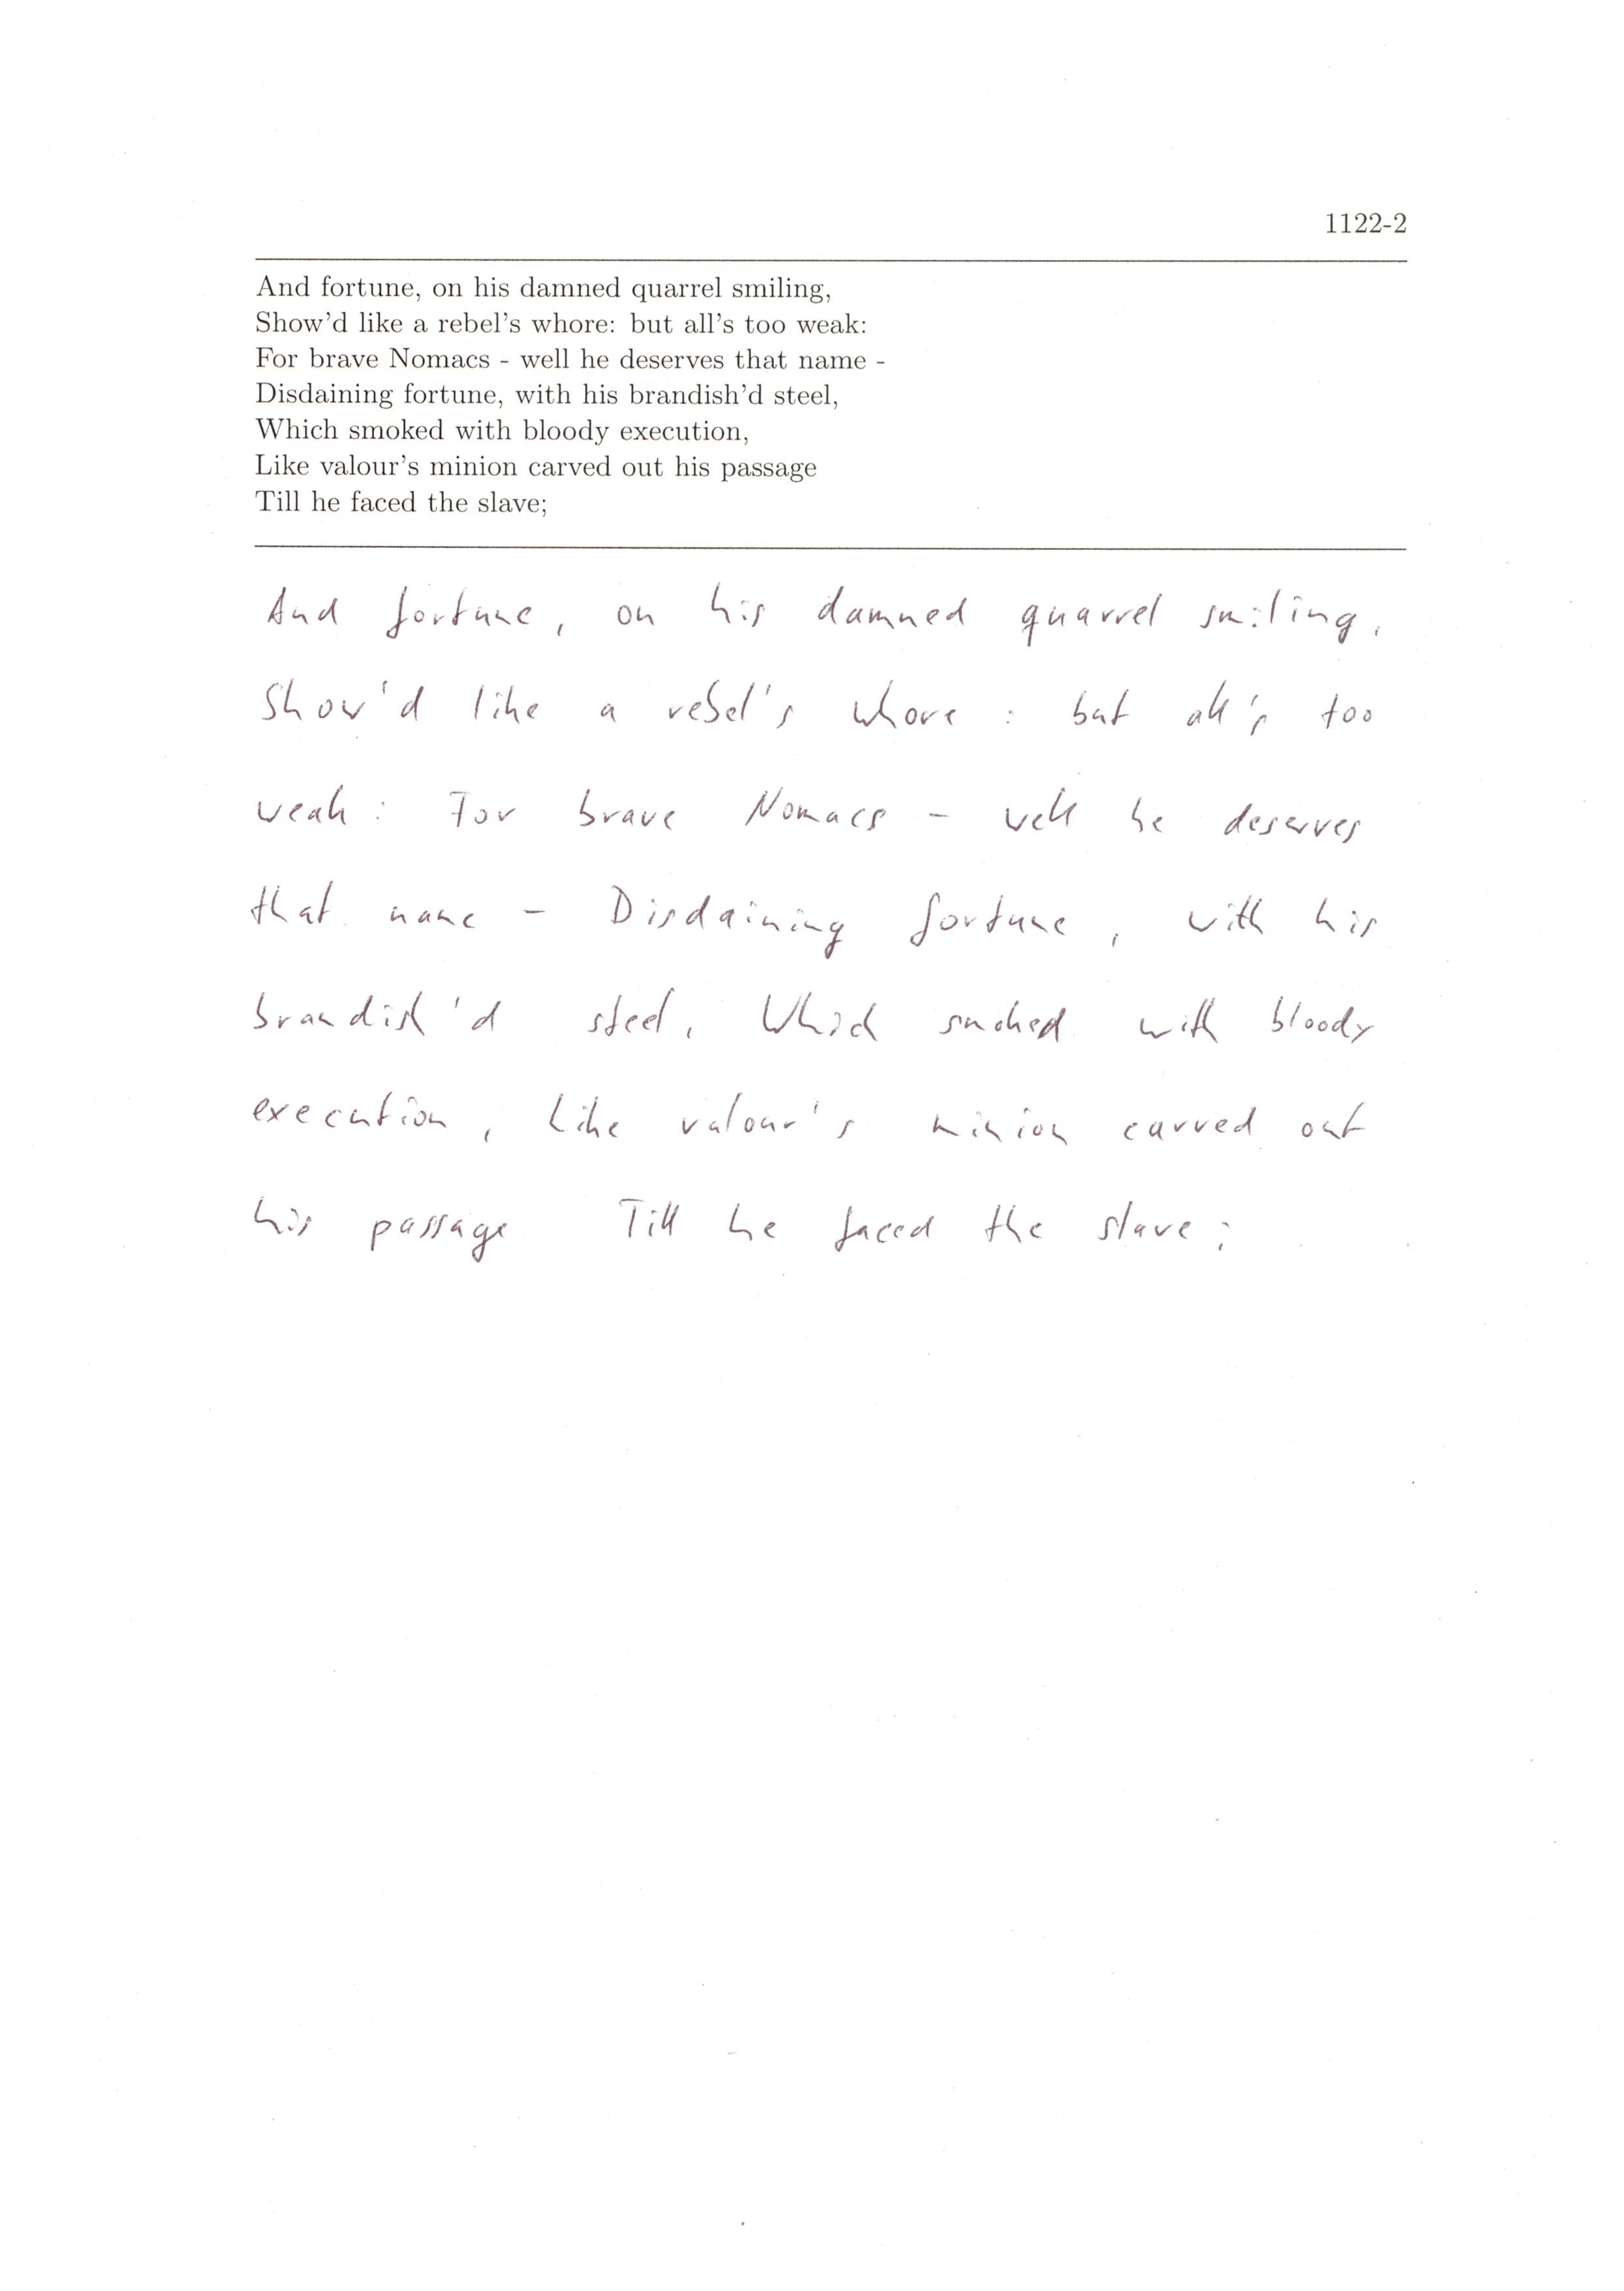 1122-2
And fortune, on his damned quarrel smiling,
Show'd like a rebel's whore: but all's too weak:
For brave Nomacs - well he deserves that name -
Disdaining fortune, with his brandish'd steel,
Which smoked with bloody execution,
Like valour's minion carved out his passage
Till he faced the slave;
And fortune, on his damned quarrel smiling,
Show'd like a rebel's whore : but all's too
weak : For brave Nomacs - well he deserves
that name - Disdaining fortune, with his
brandish'd steel, Which smoked with bloody
execution, Like valour's minion carved out
his passage Till he faced the slave;